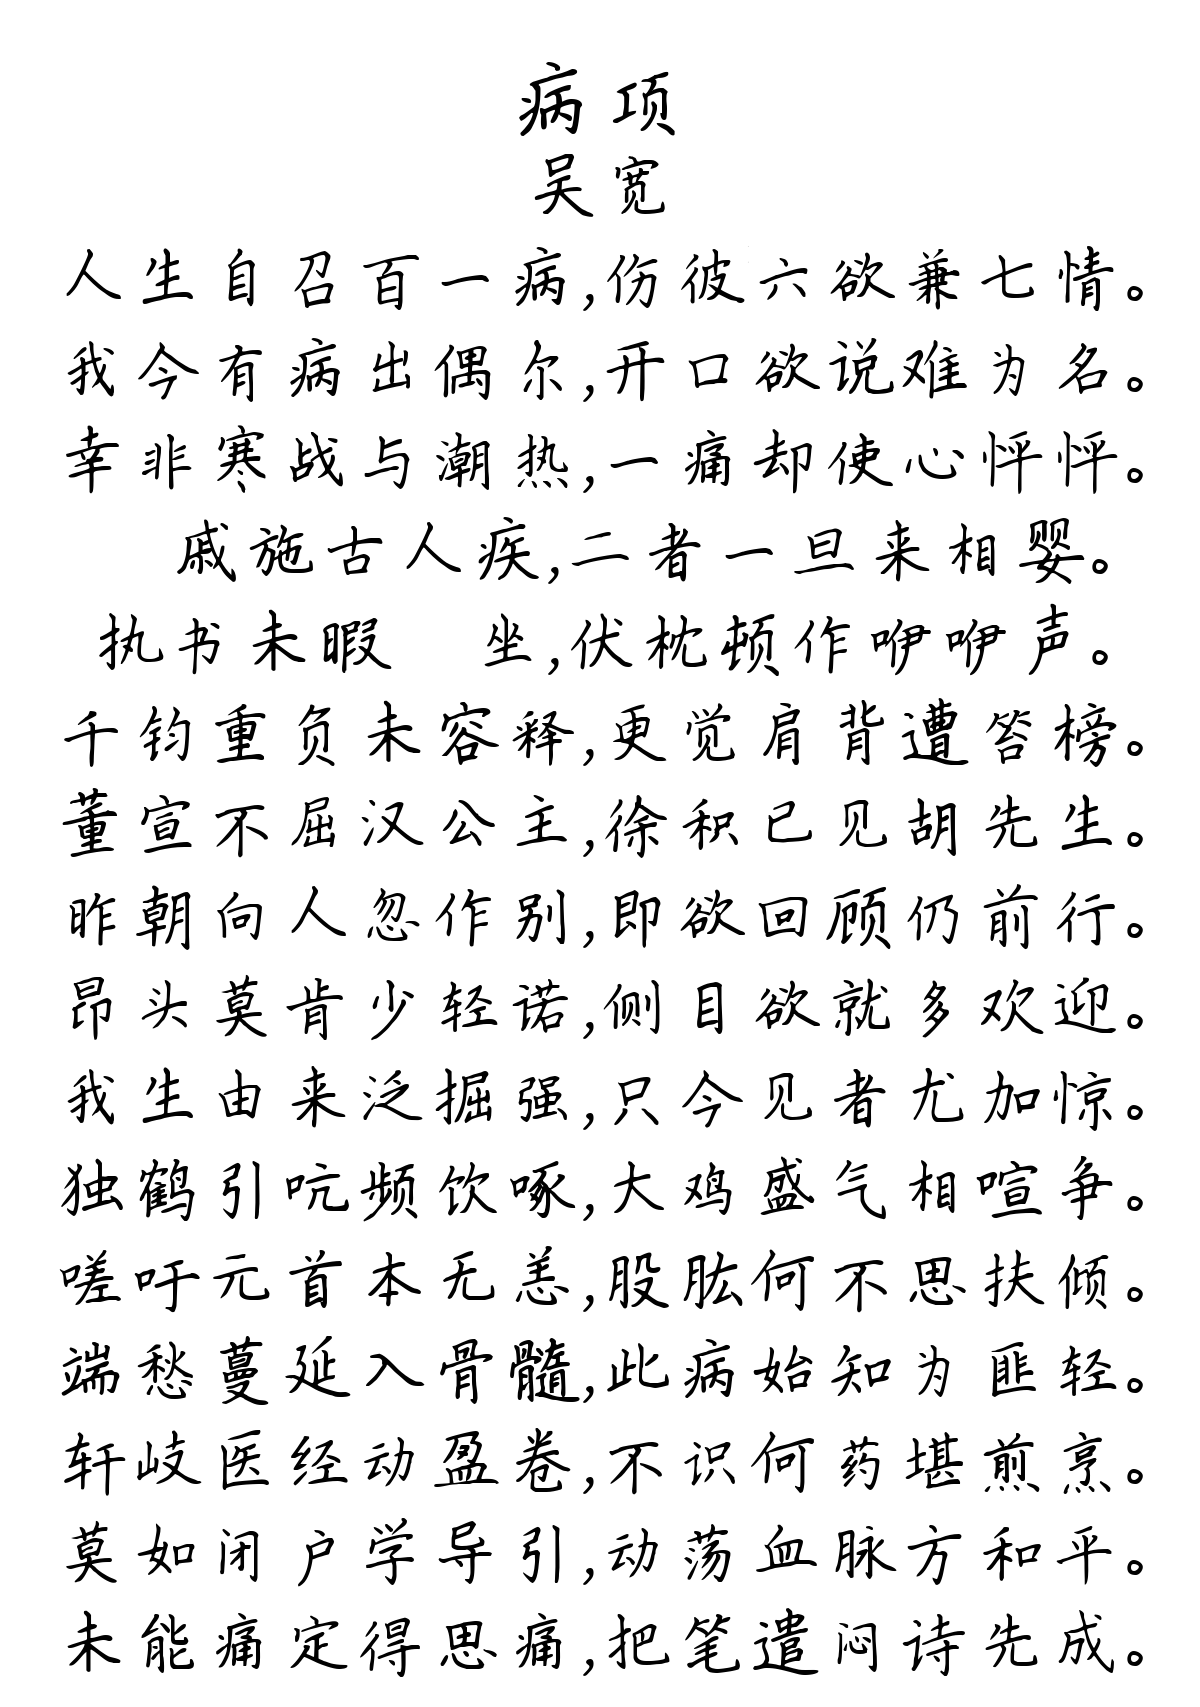 病项
吴宽
人生自召百一病,伤彼六欲兼七情。
我今有病出偶尔,开口欲说难为名。
幸非寒战与潮热,一痛却使心怦怦。
戚施古人疾,二者一旦来相婴。
执书未暇 坐,伏枕顿作咿咿声。
千钧重负未容释,更觉肩背遭笞榜。
董宣不屈汉公主,徐积已见胡先生。
昨朝向人忽作别,即欲回顾仍前行。
昂头莫肯少轻诺,侧目欲就多欢迎。
我生由来泛掘强,只今见者尤加惊。
独鹤引吭频饮啄,大鸡盛气相喧争。
嗟吁元首本无恙,股肱何不思扶倾。
端愁蔓延入骨髓,此病始知为匪轻。
轩岐医经动盈卷,不识何药堪煎烹。
莫如闭户学导引,动荡血脉方和平。
未能痛定得思痛,把笔遣闷诗先成。